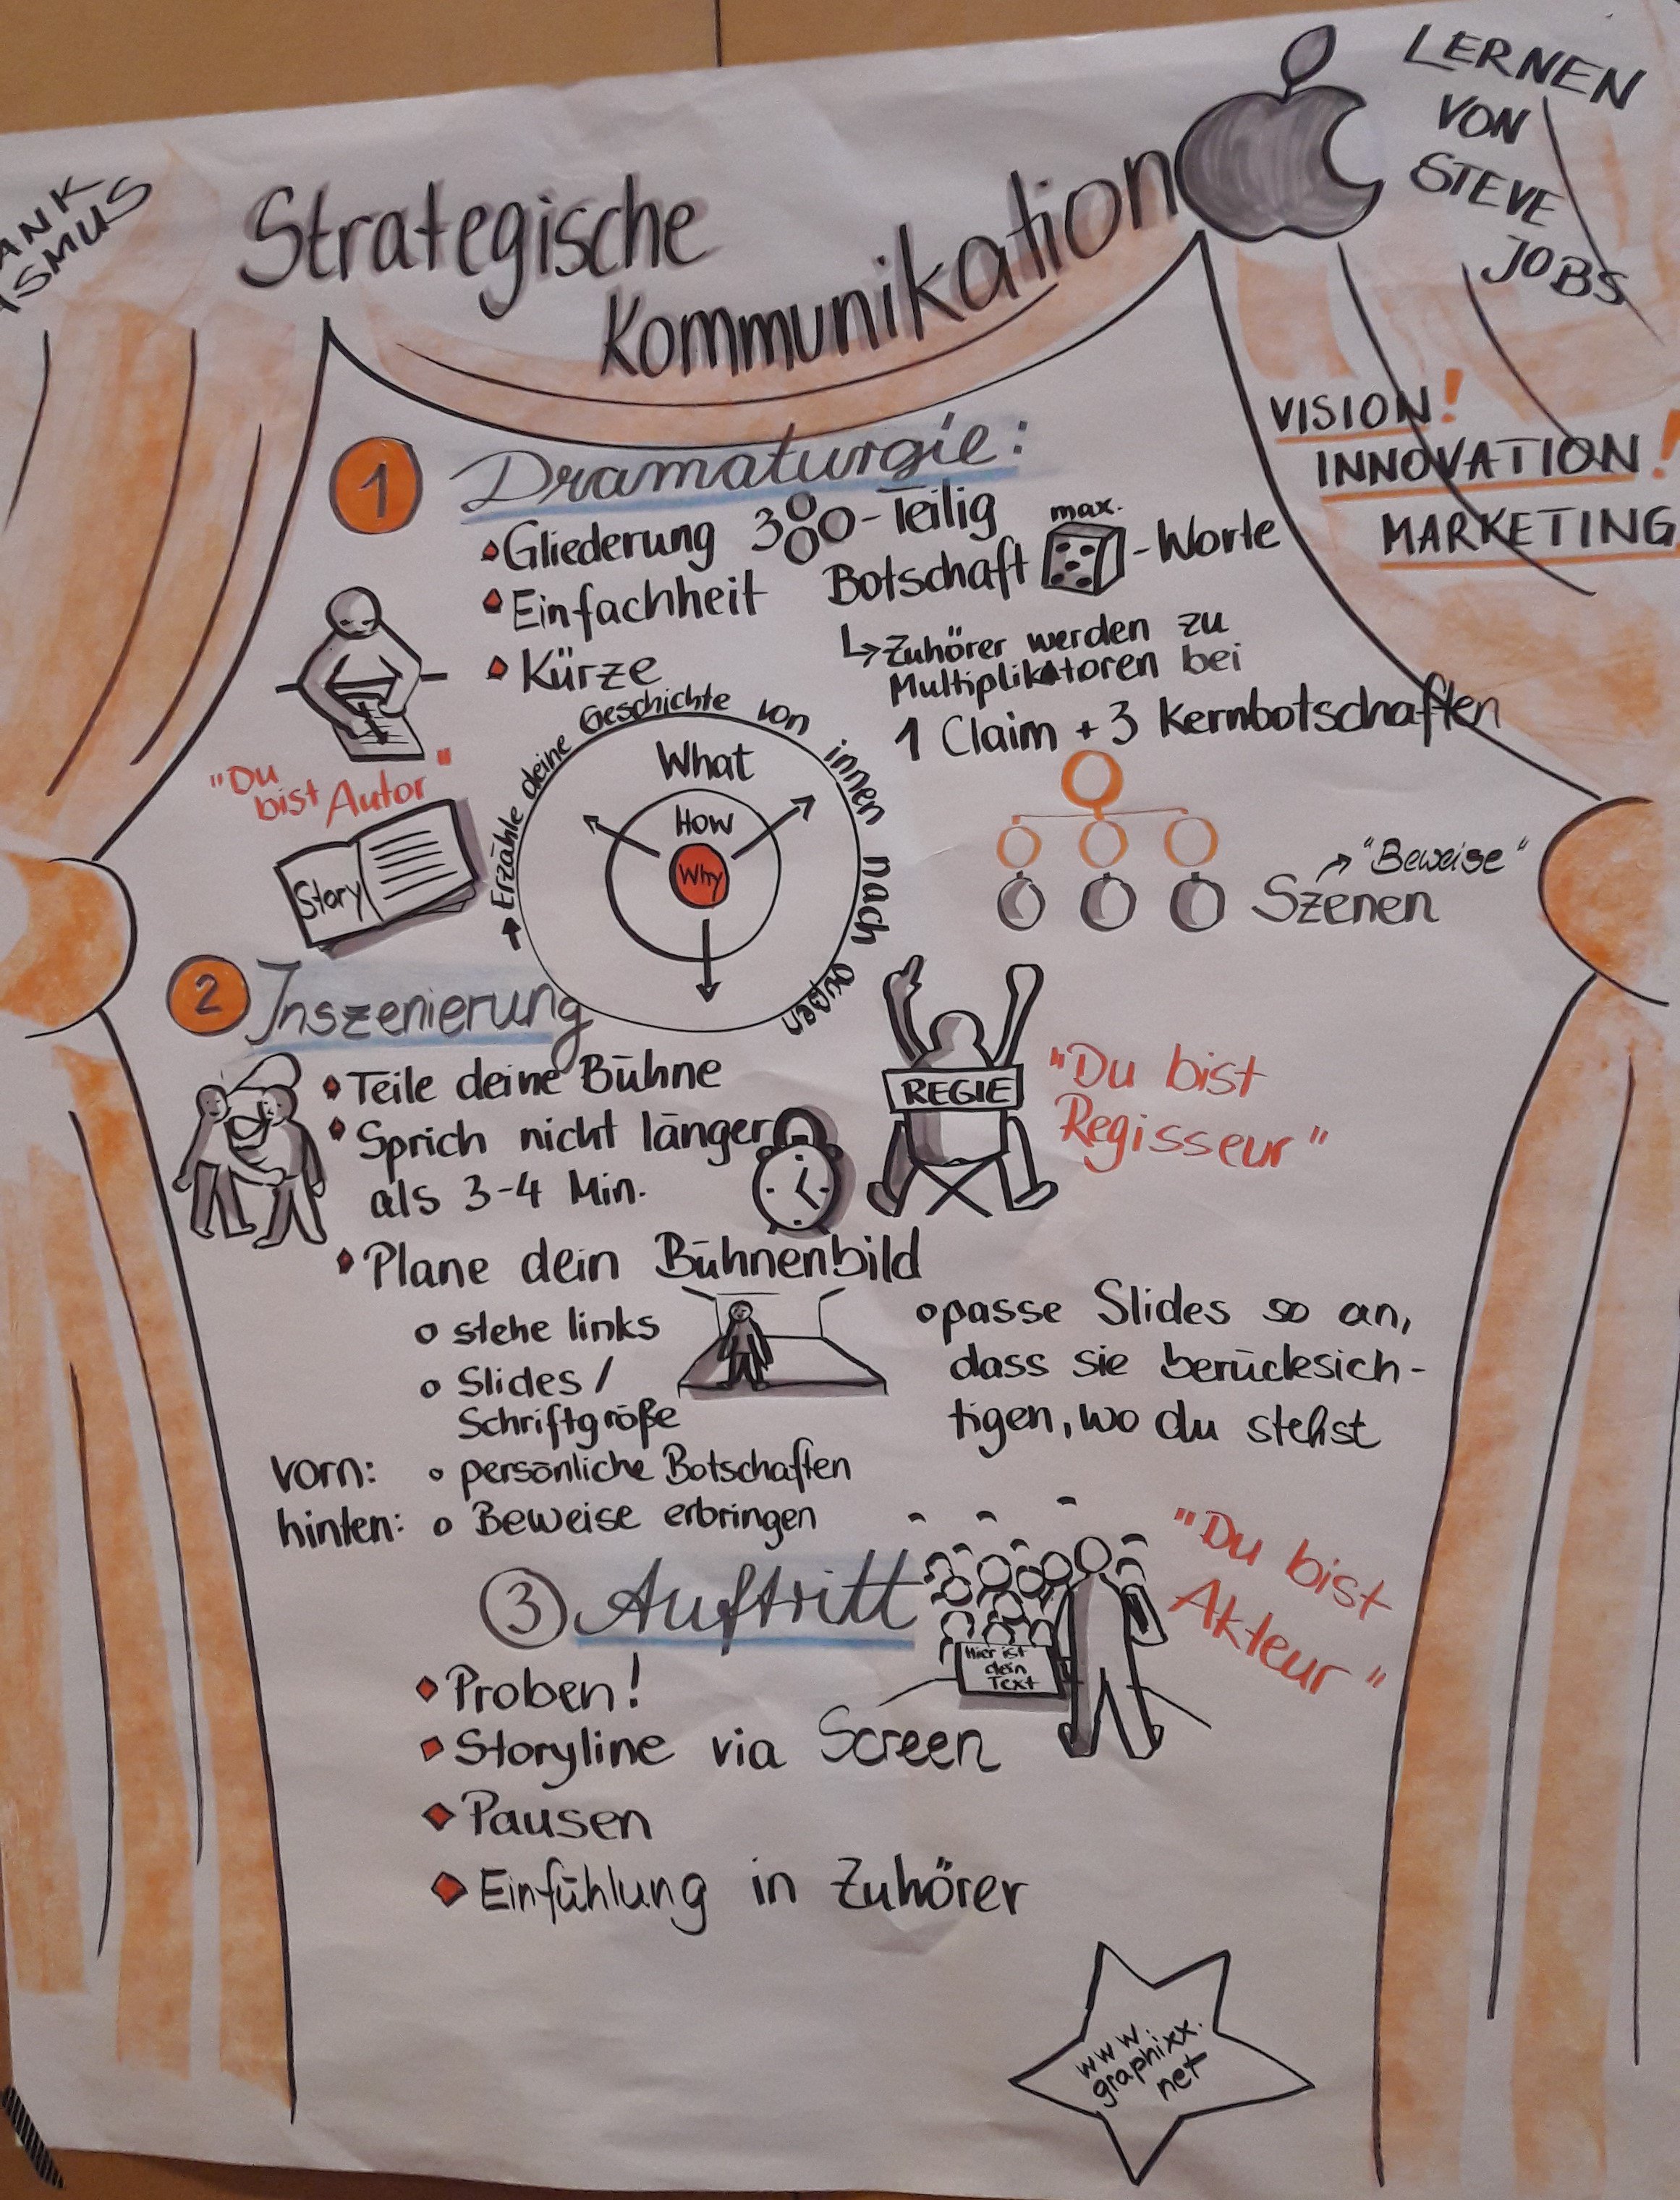 Strategische
Kommunikation
LERNEN
VON
STEVE
JOBS
VISION!
INNOVATION!
MARKETING
1 Dramaturgie:
Gliederung 3-Teilig
Einfachheit
Kürze
Botschaft max. -Worte
Zuhörer werden zu
Multiplikatoren bei
1 Claim + 3 Kernbotschaften
"Beweise"
Szenen
"Du
bist Autor"
Story
Erzähle deine Geschichte von innen nach außen
What
How
Why
2 Inszenierung
Teile deine Bühne
Sprich nicht länger
als 3-4 Min.
REGIE
"Du bist
Regisseur"
Plane dein Bühnenbild
stehe links
Slides /
Schriftgröße
passe Slides so an,
dass sie berücksich-
tigen, wo du stehst
vorn: persönliche Botschaften
hinten: Beweise erbringen
3 Auftritt
Hier ist
dein
Text
"Du bist
Akteur"
Proben!
Storyline via Screen
Pausen
Einfühlung in Zuhörer
www.
graphixx.
net